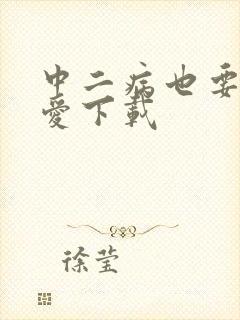 中二病也要
愛下載
徐莹